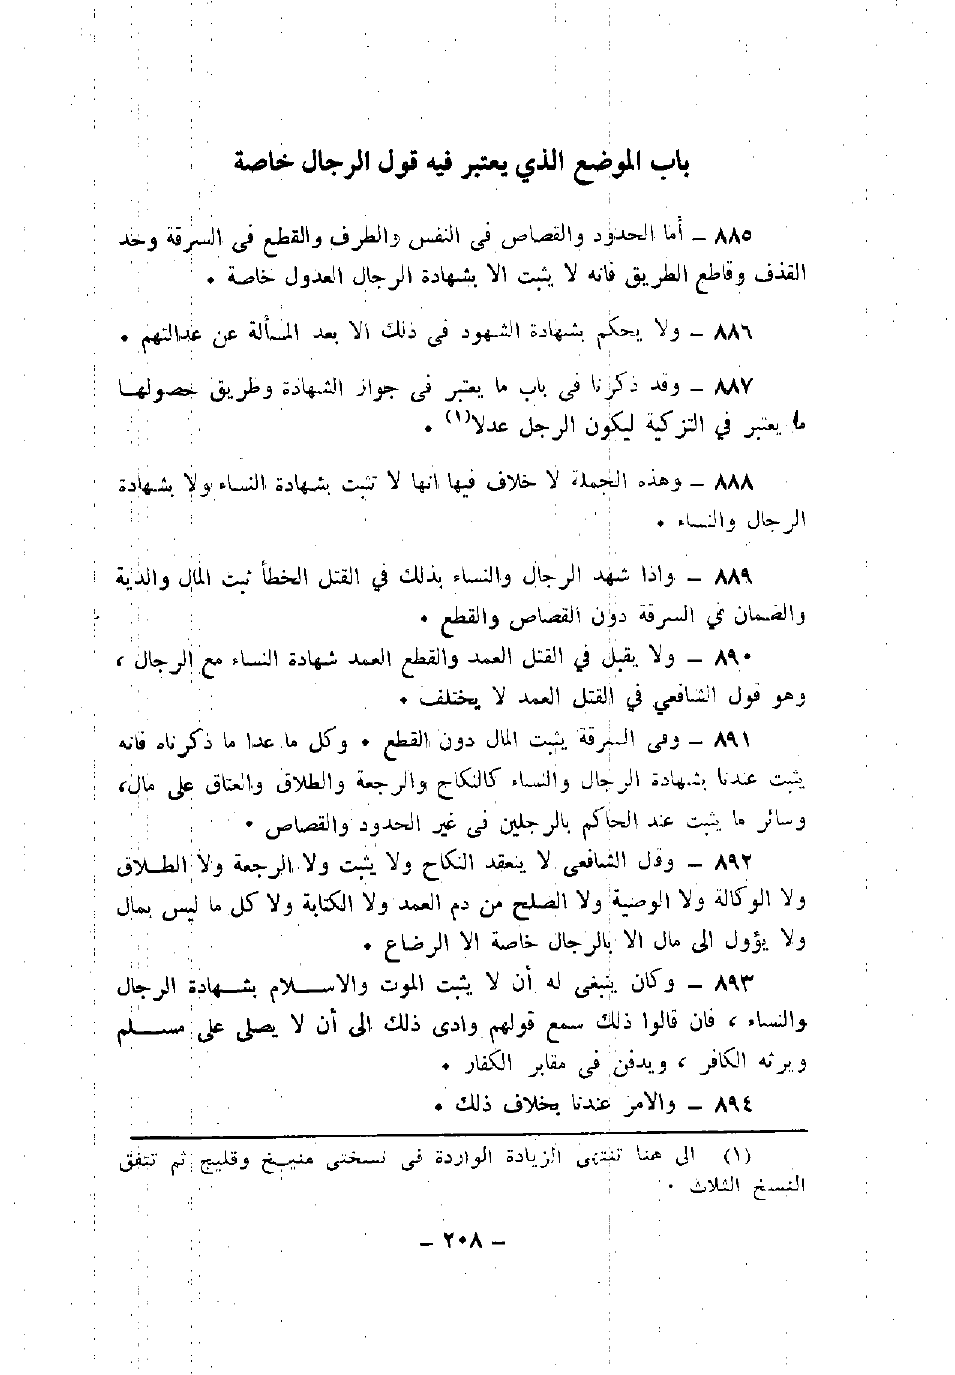 باب الموضع الذي يعتبر فيه قول الرجال خاصة
٨٨٥ – أما الحدود والقصاص في النفس والطرف والقطع في السرقة وحد
القذف وقاطع الطريق فانه لا يثبت الا بشهادة الرجال العدول خاصة .
٨٨٦ – ولا يحكم بشهادة الشهود في ذلك الا بعد المسألة عن عدالتهم .
٨٨٧ – وقد ذكرنا في باب ما يعتبر في جواز الشهادة وطريق حصولها
ما يعتبر في التزكية ليكون الرجل عدلا(١) .
٨٨٨ – وهذه الجملة لا خلاف فيها انها لا تثبت بشهادة النساء ولا بشهادة
الرجال والنساء .
٨٨٩ – واذا شهد الرجال والنساء بذلك في القتل الخطأ ثبت المال والدية
والضمان في السرقة دون القصاص والقطع .
٨٩٠ – ولا يقبل في القتل العمد والقطع العمد شهادة النساء مع الرجال ،
وهو قول الشافعي في القتل العمد لا يختلف .
٨٩١ – وفي السرقة يثبت المال دون القطع . وكل ما عدا ما ذكرناه فانه
يثبت عندنا بشهادة الرجال والنساء كالنكاح والرجعة والطلاق والعتاق على مال،
وسائر ما يثبت عند الحاكم بالرجلين في غير الحدود والقصاص .
٨٩٢ – وقال الشافعي لا ينعقد النكاح ولا يثبت ولا الرجعة ولا الطلاق
ولا الوكالة ولا الوصية ولا الصلح من دم العمد ولا الكتابة ولا كل ما ليس بمال
ولا يؤول الى مال الا بالرجال خاصة الا الرضاع .
٨٩٣ – وكان ينبغي له أن لا يثبت الموت والاسلام بشهادة الرجال
والنساء ، فان قالوا ذلك سمع قولهم وادى ذلك الى أن لا يصلى على مسلم
ويرثه الكافر ، ويدفن في مقابر الكفار .
٨٩٤ – والامر عندنا بخلاف ذلك .
(١) الى هنا تنتهي الزيادة الواردة في نسختي منيخ وقليج ثم تتفق
النسخ الثلاث .
– ٢٠٨ –